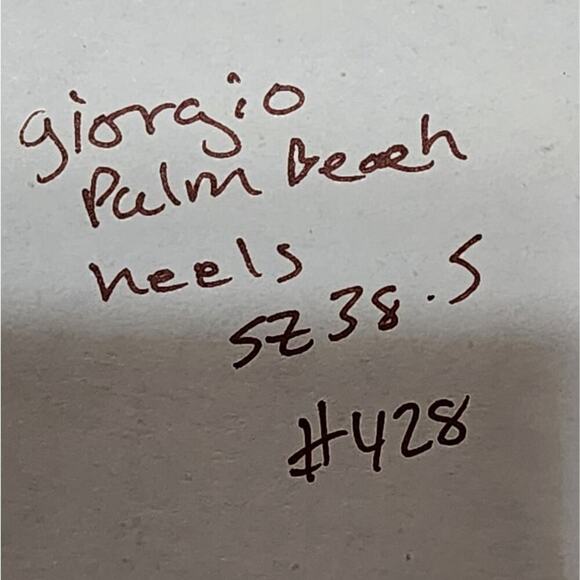 giorgio
Palm Beach
heels
SZ 38.5
#428